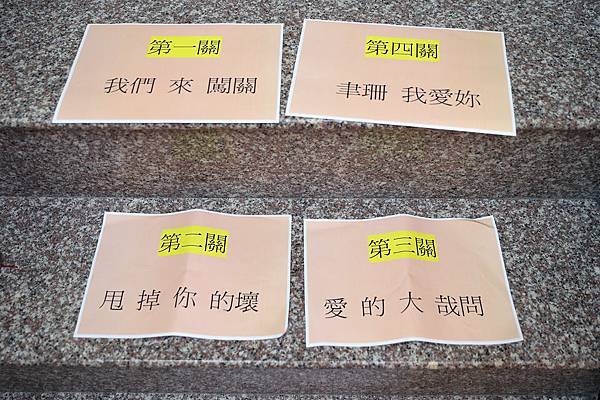 第一關
我們 來 闖關
第四關
聿珊 我愛妳
第二關
甩 掉 你 的壞
第三關
愛 的 大 哉問